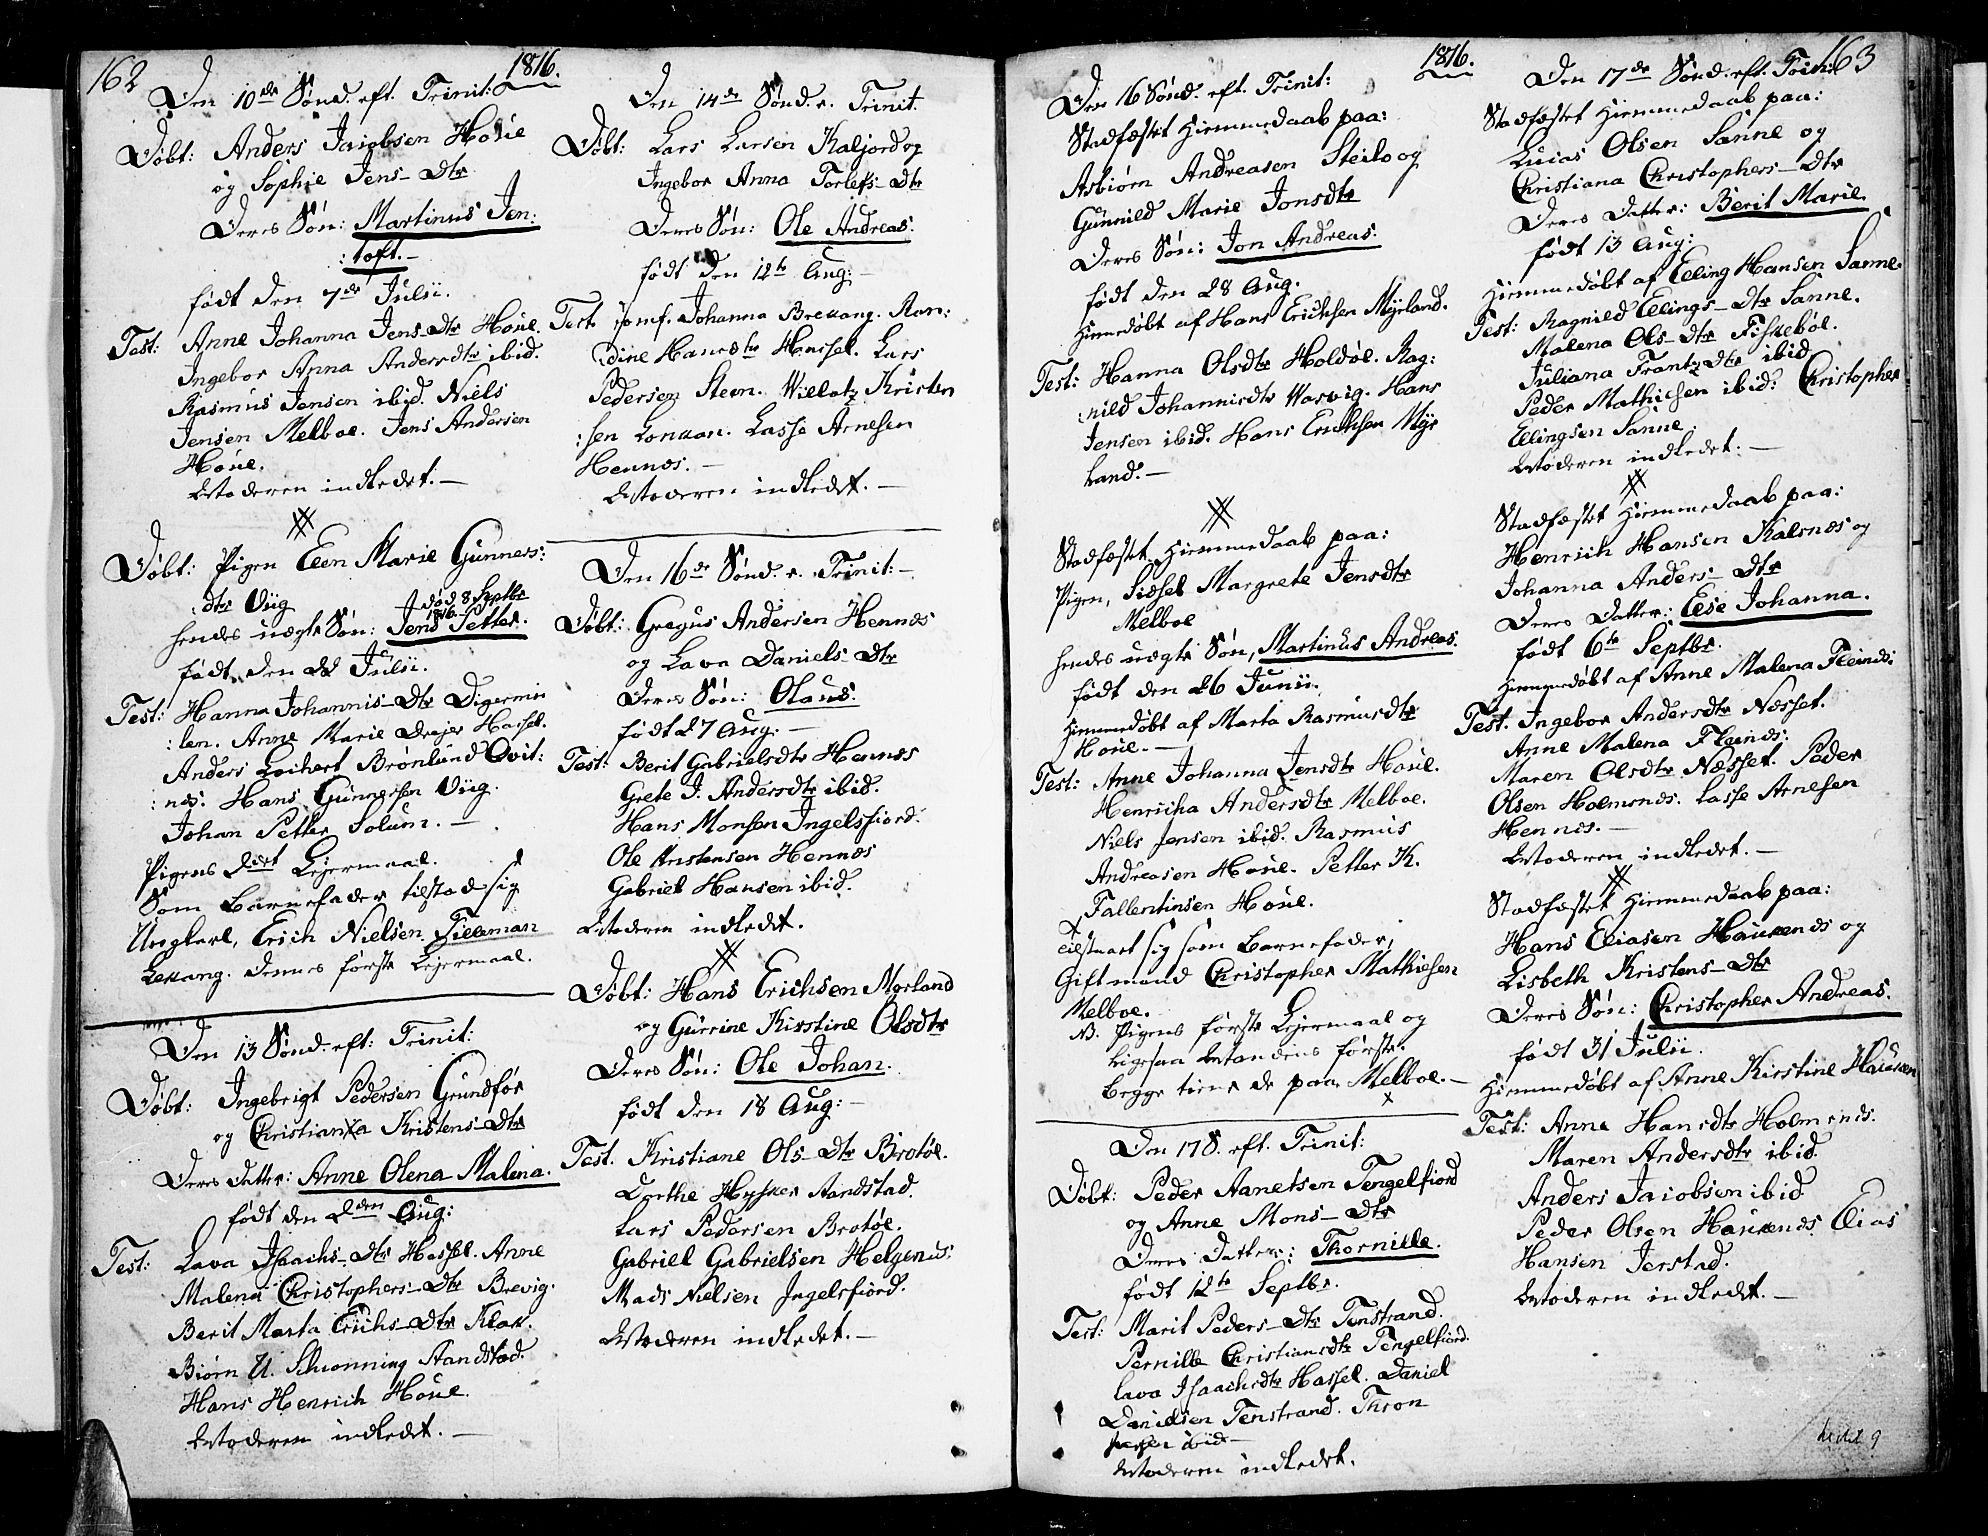 162
1816.
Den 10de Sønd. eft. Trinit:
Døbt: Anders Jacobsen Houe
og Sophie Jens-Dtr
Deres Søn: Martinus Jen:
:toft.-
født den 7de Julii.
Test: Anne Johanna Jens-Dtr Houe.
Ingebor Anna Andersdtr ibid.
Rasmus Jensen ibid. Niels
Jensen Melboe. Jens Andersen
Houe.
Moderen indledet.-
Døbt: Pigen Elen Marie Gunners:
:dtr Viig
død 8 Septbr
1816.
hendes uægte Søn: Jens Petter.
født den 22 Julii.
Test: Hanna Johannis-Dtr Digermu
:len. Anne Marie Dreyer Hassel.
Anders Lockert Brønlund Qvit:
:næs. Hans Gunnersen Viig.
Johan Petter Solum.-
Pigens 2det Lejermaal.
Som Barnefader tilstod sig
Ungkarl, Erich Nielsen Tilleman
Lekang. dennes første Lejermaal.
Den 13 Sønd. eft. Trinit:
Døbt: Ingebrigt Pedersen Grundfør
og Christianna Kristens-Dtr
Deres Datter: Anne Olena Malena.
født den 2den Aug:
Test: Lava Isaachs-Dtr Hassel. Anne
Malena Christophers-Dtr Brevig.
Berit Marta Erichs-Dtr Klak.
Biørn U. Schonning Aandstad.
Hans Henrich Houe.
Moderen indledet.-
Den 14de Sønd. e. Trinit.
Døbt: Lars Larsen Kaljord og
Ingebor Anna Torlefs-Dtr
Deres Søn: Ole Andreas.
født den 12te Aug:-
Test. Jomf. Johanna Brekang. Ron:
:dine Hansdtr Hassel. Lars
Pedersen Steen. Villatz Kristen
:sen Lonkan. Lasse Arnesen
Hennes.-
Moderen indledet.-
Den 16de Sønd. e. Trinit:-
Døbt: Gregus Andersen Hennes
og Lava Daniels-Dtr
Deres Søn: Olaus.
født 27 Aug:-
Test: Berit Gabrielsdtr Hennes
Grete J. Andersdtr ibid.
Hans Monsen Ingelsfiord.
Ole Kristensen Hennes
Gabriel Hansen ibid.
Moderen indledet.
Døbt: Hans Erichsen Myrland
og Gurrine Kirstine Olsdtr
Deres Søn: Ole Johan.
født den 18 Aug:-
Test. Kristiane Ols-Dtr Brotøe.
Dorthe Hysker Aandstad.
Lars Pedersen Brotøe.
Gabriel Gabrielsen Helgenæs:
Mads Nielsen Ingelsfiord.
Moderen indledet.-
1816.
Den 16 Sønd. eft. Trinit:
Stadfæstet Hiemmedaab paa:
Asbiørn Andreasen Steilo og
Gunnild Marie Jonsdtr
Deres Søn: Jon Andreas.
født den 28 Aug.
Hiemedøbt af Hans Erichsen Myrland.
Test: Hanna Olsdtr Holdøe. Rag:
:nild Johannisdtr Warvig. Hans
Jensen ibid. Hans Erichsen Myr
land.-
Stadfæstet Hiemmedaab paa:
Pigen, Sidsel Margrete Jensdtr
Melboe
hendes uægte Søn, Martinus Andreas.
født den 26 Junii.
Hiemmedøbt af Marta Rasmusdtr
Houe.-
Test: Anne Johanna Jensdtr Houe.
Henricha Andersdtr Melboe.
Niels Jensen ibid. Rasmus
Andreasen Houe. Petter K.
Fallentinsen Houe.
tilstaaet sig som Barnefader,
Giftmand Christopher Mathiesen
Melboe.
N. Pigens første Lejermaal og
ligesaa Mandens første.
begge tiener de paa Melboe.-
Den 17 S. eft. Trinit:
Døbt: Peder Aanetsen Tengelfiord
og Anne Mons-Dtr
Deres Datter: Thornille.
født 12te Septbr.
Test: Marit Peders-Dtr Tenstrand.
Pernille Christiansdtr Tengelfiord.
Lava Isaachsdtr Hassel. Daniel
Danielsen Tenstrand. Thron
ibid-
Moderen indledet.
163
Den 17de Sønd. eft. Trin:
Stadfæstet Hiemmedaab paa:
Lucas Olsen Sanne og
Christiana Christophers-Dtr
Deres Datter: Berit Marie.
født 13 Aug:
Hiemmedøbt af Elling Hansen Sanne.
Test: Ragnild Ellings-Dtr Sanne.
Malena Ols-Dtr Fiskebøe.
Juliana Frantzdtr ibid
Peder Mathiesen ibid: Christopher
Ellingsen Sanne.
Moderen indledet:-
Stadfæstet Hiemmedaab paa:
Henrich Hansen Kalsnæs og
Johanna Anders-Dtr
Deres Datter: Else Johanna.
født 6te Septbr.
Hiemmedøbt af Anne Malena Fleinæs:
Test. Ingebor Andersdtr Næsset.
Anne Malena Fleinæs:
Maren Olsdtr Næsset. Peder
Olsen Holmenæs. Lasse Arnesen
Hennes.-
Moderen indledet.-
Stadfæstet Hiemmedaab paa:
Hans Eliasen Haukenæs og
Lisbeth Kristens-Dtr
Deres Søn: Christopher Andreas.
født 31 Julii.
Hiemmedøbt af Anne Kirstine Hauken
Test: Anne Hansdtr Holmenæs.
Maren Andersdtr ibid.
Anders Jacobsen ibid
Peder Olsen Haukenæs Elias
Hansen Jerstad.
Moderen indledet.-